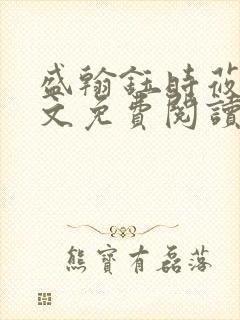 盛翰鈺時莜
文免費閱讀
熊寶有磊落